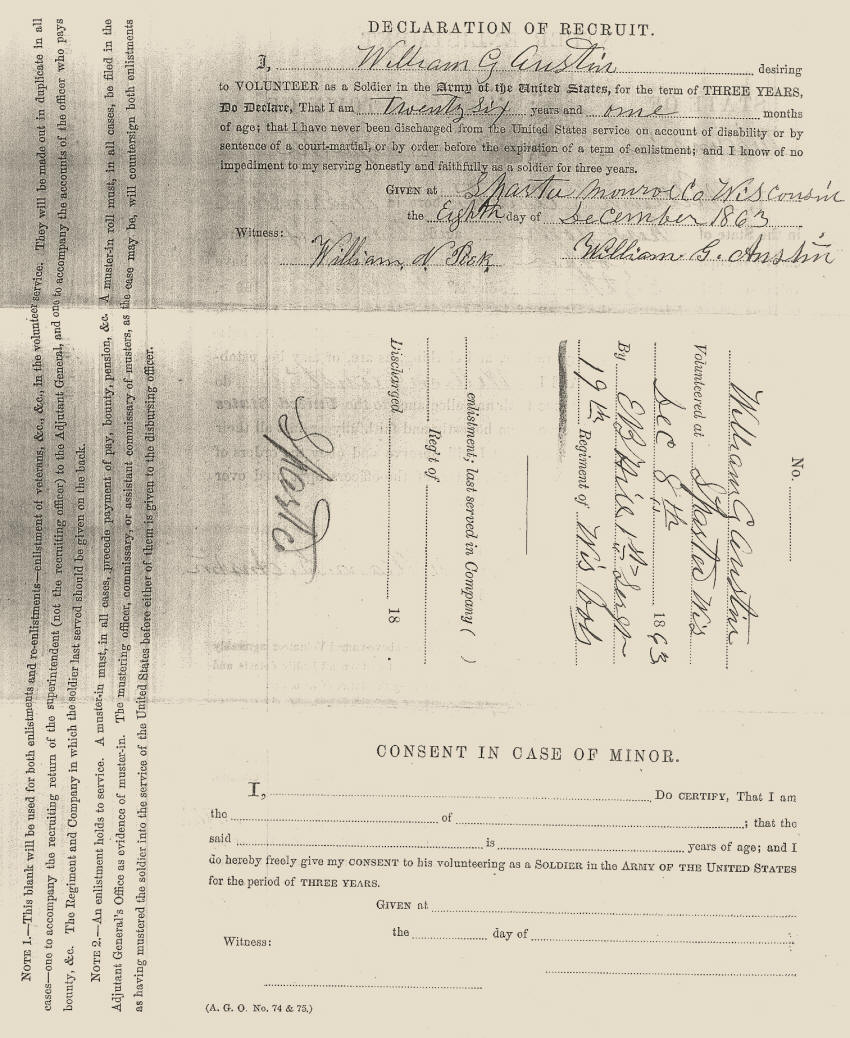 DECLARATION OF RECRUIT.
I, William G Austin desiring
to VOLUNTEER as a Soldier in the Army of the United States, for the term of THREE YEARS,
Do Declare, That I am twenty six years and one months
of age; that I have never been discharged from the United States service on account of disability or by
sentence of a court-martial, or by order before the expiration of a term of enlistment; and I know of no
impediment to my serving honestly and faithfully as a soldier for three years.
GIVEN at Sparta Monroe Co Wisconsin
the Eighth day of December 1863
Witness:
William N Peck William. G. Austin
No.
William G Austin
Volunteered at Sparta Wis
Dec 8th 1863
By E B Hill 1st Sergt
19th Regiment of Wis Vols
enlistment; last served in Company ( )
Reg't of
Discharged 18 .
Sparta
CONSENT IN CASE OF MINOR.
I, DO CERTIFY, That I am
the of ; that the
said is years of age; and I
do hereby freely give my CONSENT to his volunteering as a SOLDIER in the ARMY OF THE UNITED STATES
for the period of THREE YEARS.
GIVEN at
the day of
Witness:
(A. G. O. No. 74 & 75.)
NOTE 1.—This blank will be used for both enlistments and re-enlistments—enlistment of veterans, &c., &c., in the volunteer service. They will be made out in duplicate in all
cases—one to accompany the recruiting return of the superintendent (not the recruiting officer) to the Adjutant General, and one to accompany the accounts of the officer who pays
bounty, &c. The Regiment and Company in which the soldier last served should be given on the back.
NOTE 2.—An enlistment holds to service. A muster-in must, in all cases, precede payment of pay, bounty, pension, &c. A muster-in roll must, in all cases, be filed in the
Adjutant General's Office as evidence of muster-in. The mustering officer, commissary, or assistant commissary of musters, as the case may be, will countersign both enlistments
as having mustered the soldier into the service of the United States before either of them is given to the disbursing officer.